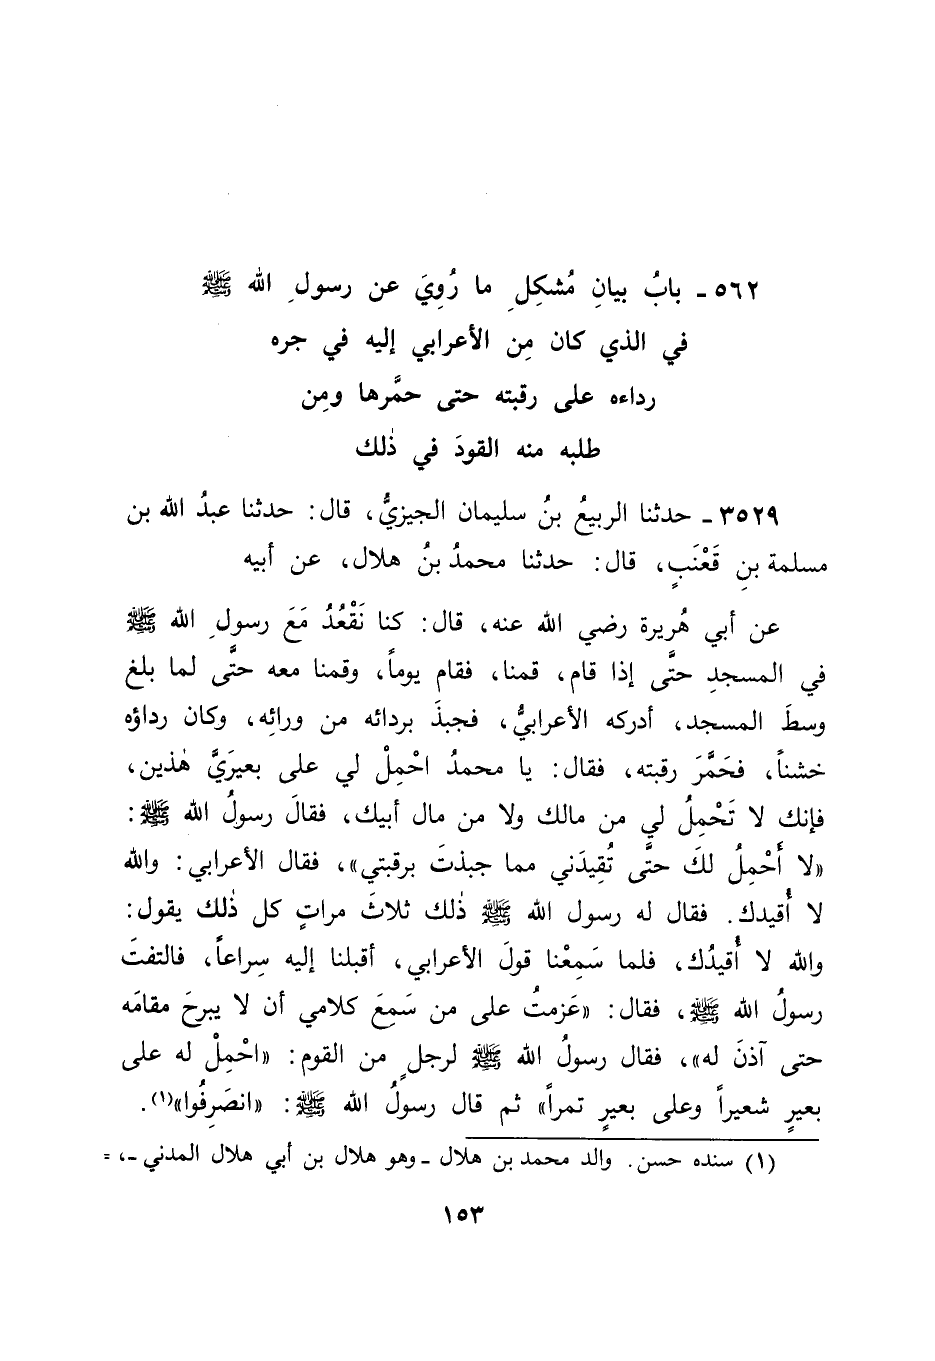 ٥٦٢ ـ بابُ بيانِ مُشكِلِ ما رُوِيَ عن رسولِ الله ﷺ
في الذي كان مِن الأعرابي إليه في جره
رداءه على رقبته حتى حمَّرها ومِن
طلبه منه القودَ في ذٰلك
٣٥٢٩ ـ حدثنا الربيعُ بنُ سليمان الجيزيُّ، قال: حدثنا عبدُ الله بن
مسلمة بنِ قَعْنَبٍ، قال: حدثنا محمدُ بنُ هلال، عن أبيه
عن أبي هُريرة رضي الله عنه، قال: كنا نَقْعُدُ مَعَ رسولِ الله ﷺ
في المسجدِ حتَّى إذا قام، قمنا، فقام يوماً، وقمنا معه حتَّى لما بلغ
وسطَ المسجد، أدركه الأعرابيُّ، فجبذَ بردائه من ورائِه، وكان رداؤه
خشناً، فحَمَّرَ رقبته، فقال: يا محمدُ احْمِلْ لي على بعيرَيَّ هٰذين،
فإنك لا تَحْمِلُ لي من مالك ولا من مال أبيك، فقالَ رسولُ الله ﷺ:
«لا أَحْمِلُ لكَ حتَّى تُقِيدَني مما جبذتَ برقبتي»، فقال الأعرابي: والله
لا أُقيدك. فقال له رسول الله ﷺ ذٰلك ثلاثَ مراتٍ كل ذٰلك يقول:
والله لا أُقيدُك، فلما سَمِعْنا قولَ الأعرابي، أقبلنا إليه سِراعاً، فالتفتَ
رسولُ الله ﷺ، فقال: «عَزمتُ على من سَمِعَ كلامي أن لا يبرحَ مقامَه
حتى آذنَ له»، فقال رسولُ الله ﷺ لرجلٍ من القوم: «احْمِلْ له على
بعيرٍ شعيراً وعلى بعيرٍ تمراً» ثم قال رسولُ الله ﷺ: «انصَرِفُوا»(١).
(١) سنده حسن. والد محمد بن هلال ـ وهو هلال بن أبي هلال المدني ـ، =
١٥٣